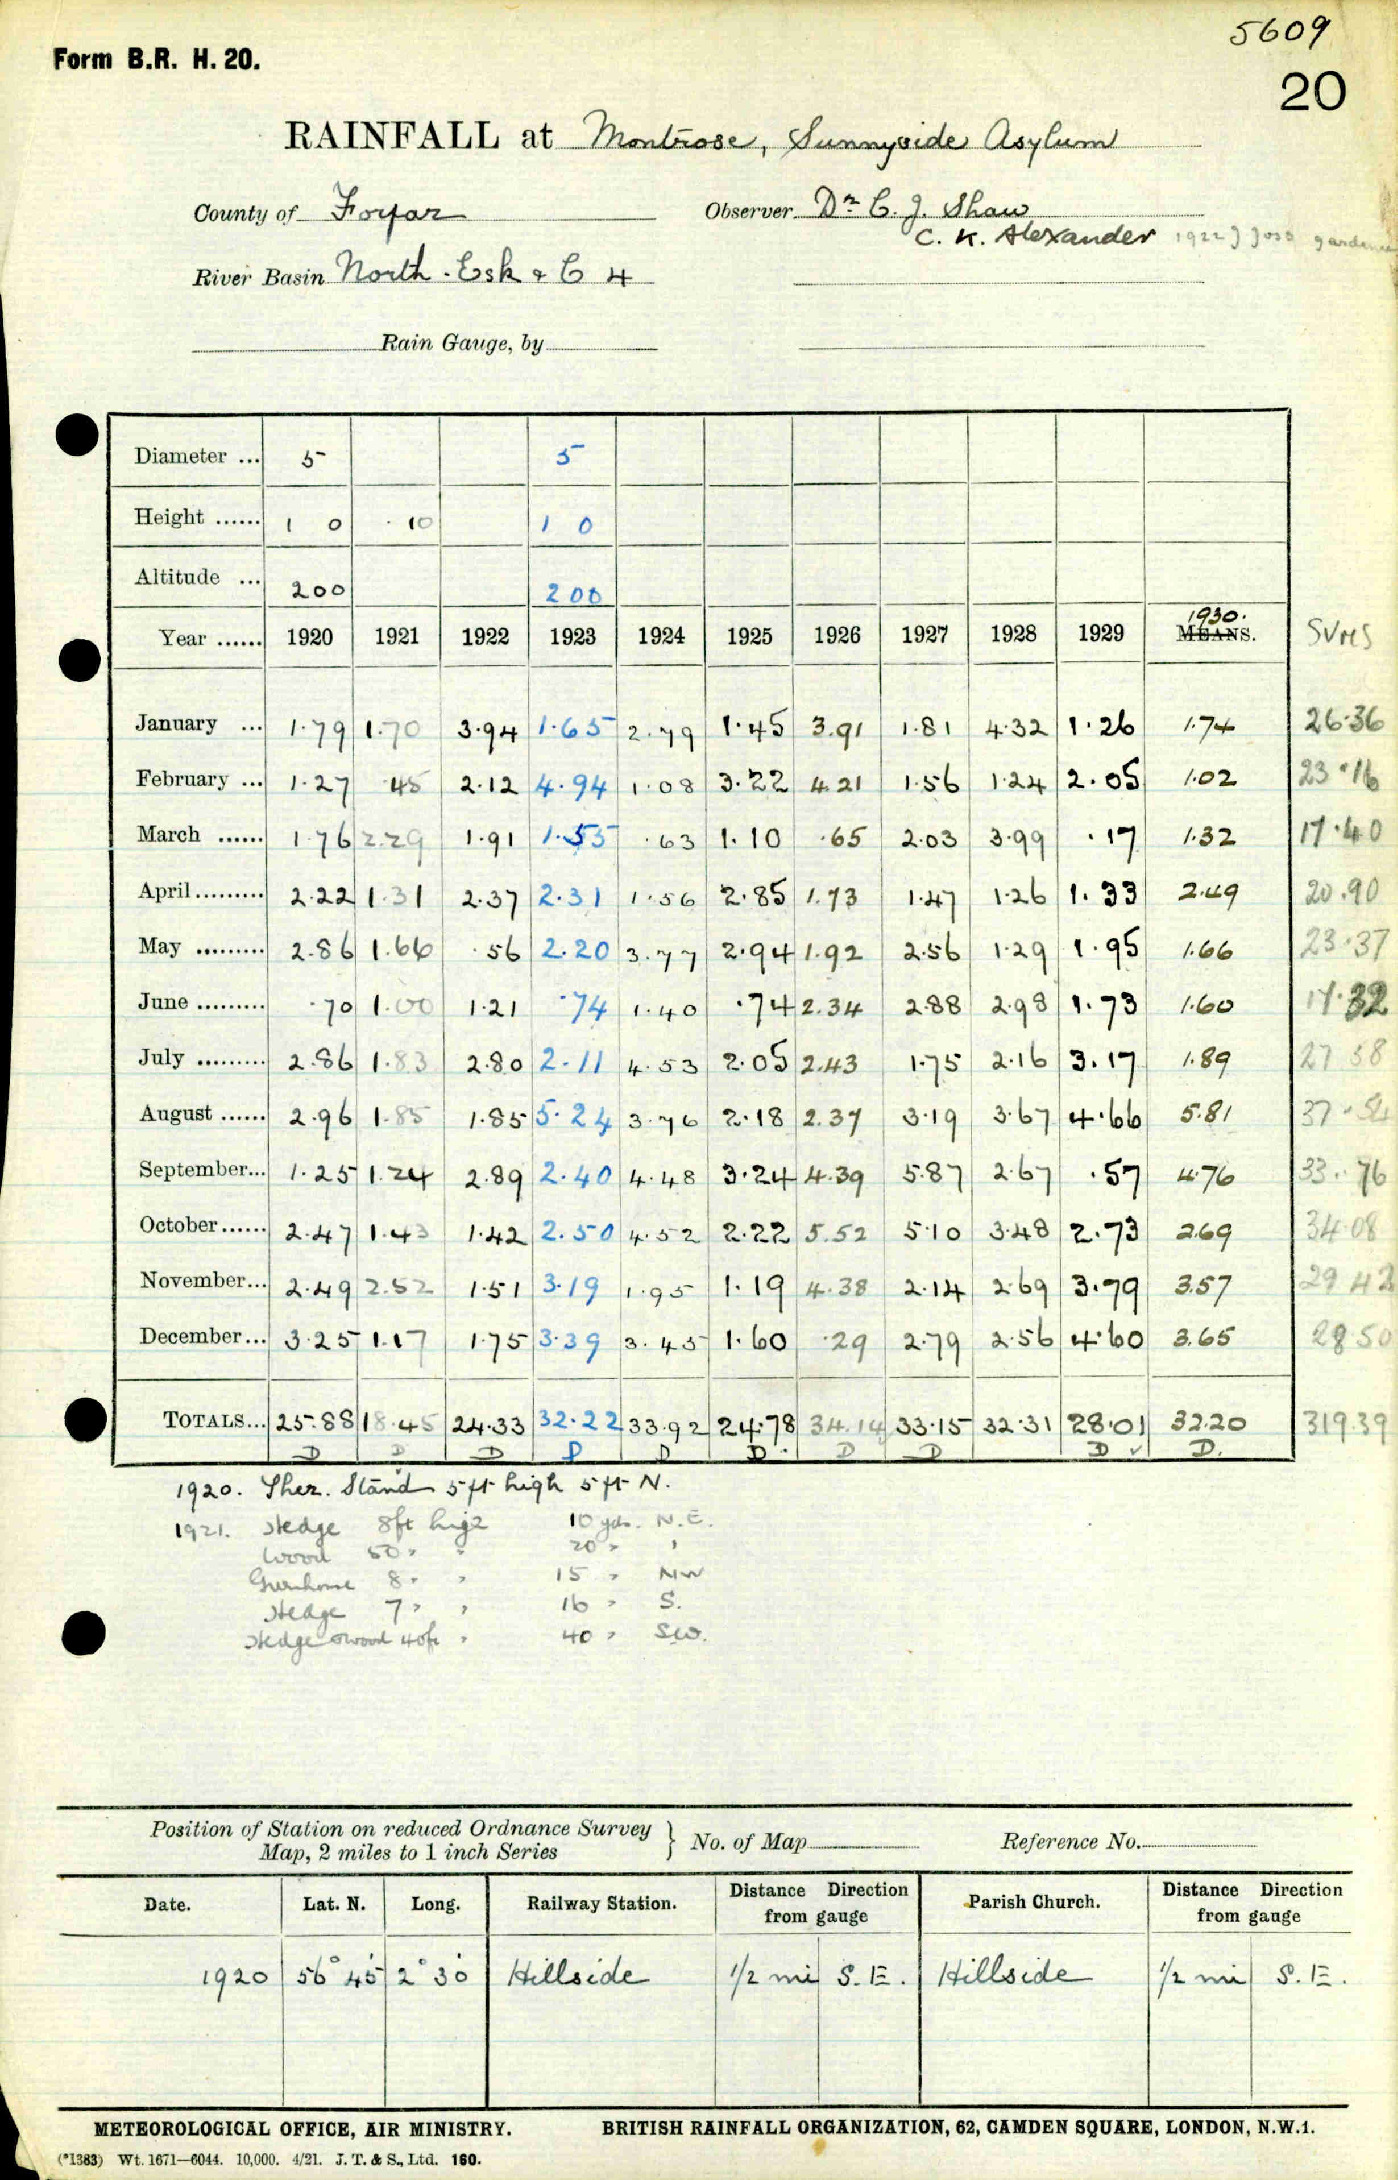 5609
Form B.R. H. 20.
20
RAINFALL at Montrose, Sunnyside Asylum
County of Forfar Observer Dr C. J. Shaw
C. K. Alexander 1922 J Joss gardener
River Basin North Esk & C 4
Rain Gauge, by
Diameter ... 5 5
Height ...... 1 0 · 10 1 0
Altitude ... 200 200
1930.
Year ...... 1920 1921 1922 1923 1924 1925 1926 1927 1928 1929 MEANS. SUMS
January ... 1.79 1.70 3.94 1.65 2.79 1.45 3.91 1.81 4.32 1.26 1.74 26.36
February ... 1.27 .45 2.12 4.94 1.08 3.22 4.21 1.56 1.24 2.05 1.02 23.16
March ...... 1.76 2.29 1.91 1.55 .63 1.10 .65 2.03 3.99 .17 1.32 17.40
April ......... 2.22 1.31 2.37 2.31 1.56 2.85 1.73 1.47 1.26 1.33 2.49 20.90
May ......... 2.86 1.66 .56 2.20 3.77 2.94 1.92 2.56 1.29 1.95 1.66 23.37
June ......... .70 1.00 1.21 .74 1.40 .74 2.34 2.88 2.98 1.73 1.60 17.32
July ......... 2.86 1.83 2.80 2.11 4.53 2.05 2.43 1.75 2.16 3.17 1.89 27 58
August ...... 2.96 1.85 1.85 5.24 3.76 2.18 2.37 3.19 3.67 4.66 5.81 37.54
September... 1.25 1.24 2.89 2.40 4.48 3.24 4.39 5.87 2.67 .57 4.76 33.76
October...... 2.47 1.43 1.42 2.50 4.52 2.22 5.52 5.10 3.48 2.73 2.69 34.08
November... 2.49 2.52 1.51 3.19 1.95 1.19 4.38 2.14 2.69 3.79 3.57 29 42
December... 3.25 1.17 1.75 3.39 3.45 1.60 .29 2.79 2.56 4.60 3.65 28 50
TOTALS... 25.88 18.45 24.33 32.22 33.92 24.78 34.14 33.15 32.31 28.01 32.20 319.39
D D D D D D D D D ✓ D.
1920. Ther. Stand 5 ft high 5 ft N.
1921. Hedge 8ft high 10 yds. N.E.
Wood 50 " " 20 " "
Greenhouse 8 " " 15 " NW
Hedge 7 " " 16 " S.
Hedge & wood 40ft " 40 " SW.
Position of Station on reduced Ordnance Survey
Map, 2 miles to 1 inch Series } No. of Map Reference No.
Date. Lat. N. Long. Railway Station. Distance Direction from gauge Parish Church. Distance Direction from gauge
1920 56° 45' 2° 30' Hillside 1/2 mi S.E. Hillside 1/2 mi S.E.
METEOROLOGICAL OFFICE, AIR MINISTRY. BRITISH RAINFALL ORGANIZATION, 62, CAMDEN SQUARE, LONDON, N.W.1.
(*1383) Wt. 1671—6044. 10,000. 4/21. J. T. & S., Ltd. 160.